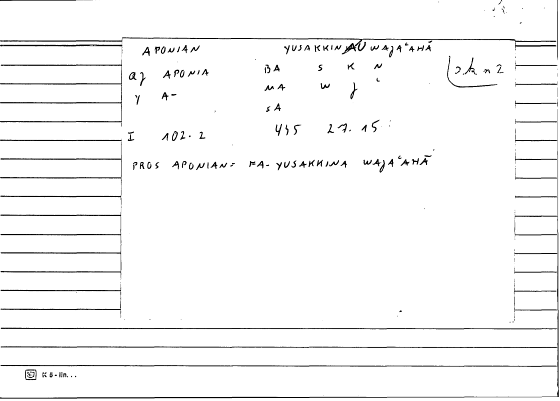 APONIAN YUSAKKINAU WAJAʿAHĀ
aj APONIA BA S K N skn2
y A- MA W J ʿ
SA
I 102.2 445 27.15
PROS APONIAN= FA-YUSAKKINA WAJAʿAHĀ